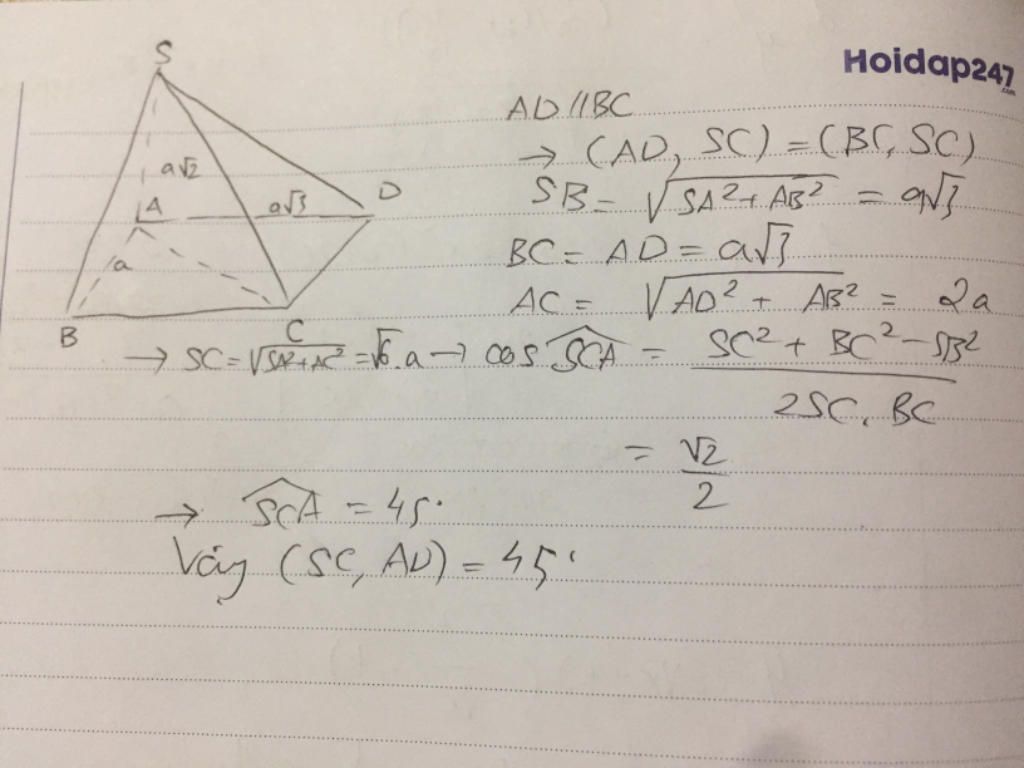 Hoidap247
.com
S
a√2
A
a√3
D
a
B
C
AD//BC
→ (AD, SC) = (BC, SC)
SB = √(SA² + AB²) = a√3
BC = AD = a√3
AC = √(AD² + AB²) = 2a
→ SC = √(SA² + AC²) = √6.a → cos SCA = (SC² + BC² - SB²) / (2SC. BC)
= √2 / 2
→ SCA = 45°
Vậy (SC, AD) = 45°